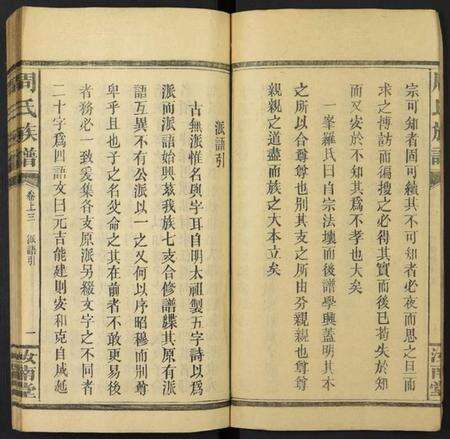 宗可知者固可續其不可知者必夜而思之日而
求之摶訪而徧搜之必得其實而後已苟失於知
而又安於不知其爲不孝也大矣
一峯羅氏曰自宗法壞而後譜學興蓋明其本
之所以合尊尊也別其支之所由分親親也尊尊
親親之道盡而族之大本立矣
周氏族譜
卷上三
派語引
一
汝南堂
派語引
古無派惟名與字耳自明太祖製五字詩以爲
派而派語始興茲我族七支合修譜牒其原有派
語互異不有公派以一之又何以序昭穆而別尊
卑乎且也子之名父命之其在前者不敢更易後
者務必一致爰集各支原派另綴文字之不同者
二十字爲四語文曰元吉能建則安和克自成延